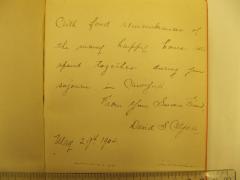 With fond remembrances of
the many happy hours we
spent together during your
sojourn in
From Your Sincere Friend
David S.
May 29th 1904